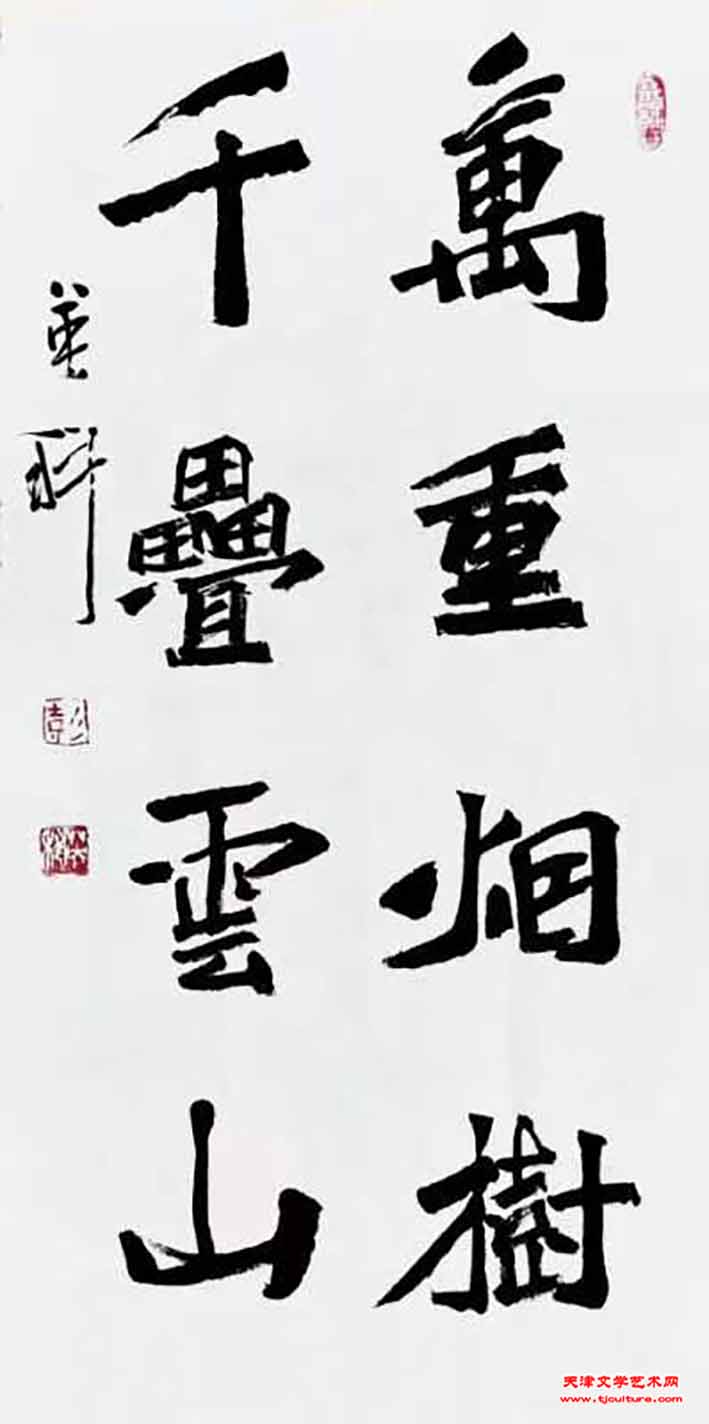 萬重烟樹
千疊雲山
英科
天津文学艺术网
www.tjculture.com